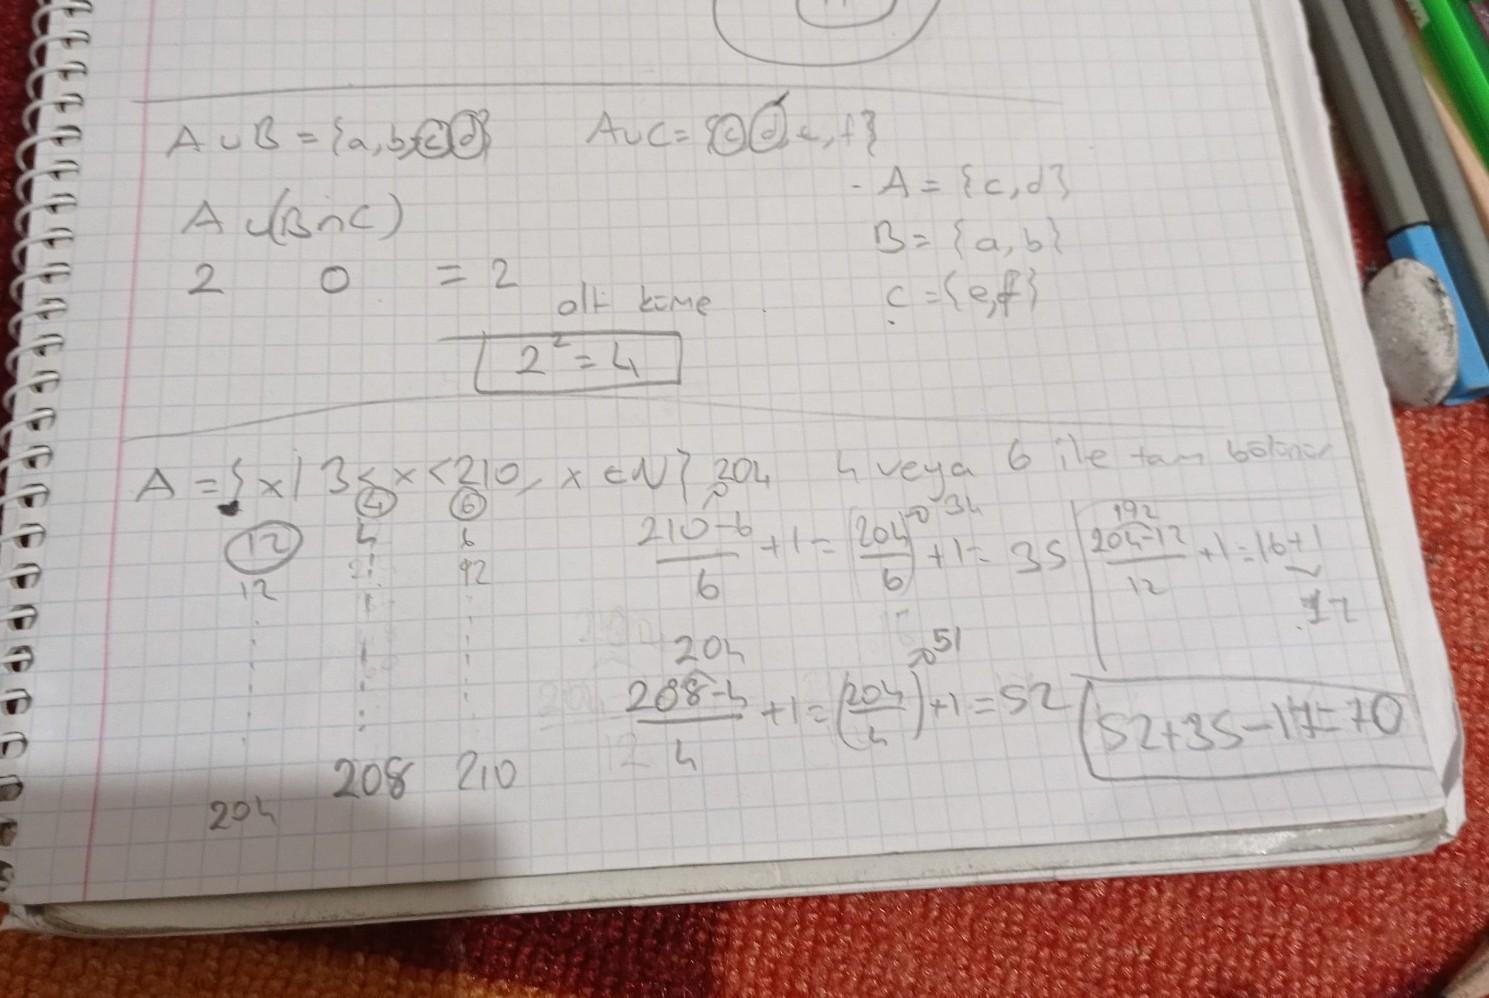 A ∪ B = {a, b, c, d} A∪C = {c, d, e, f}
- A = {c, d}
A ∪(B∩C)
B = {a, b}
2 0 = 2
alt küme
C = {e, f}
2² = 4
A = {x | 3 ≤ x < 210, x ∈ N} 204 4 veya 6 ile tam bölünür
4 6
12 4 6
12
210-6/6 + 1 = (204/6) → 34 + 1 = 35
192
204-12/12 + 1 = 16+1
17
204
208-4/4 + 1 = (204/4) → 51 + 1 = 52
52+35-17=70
208 210
204